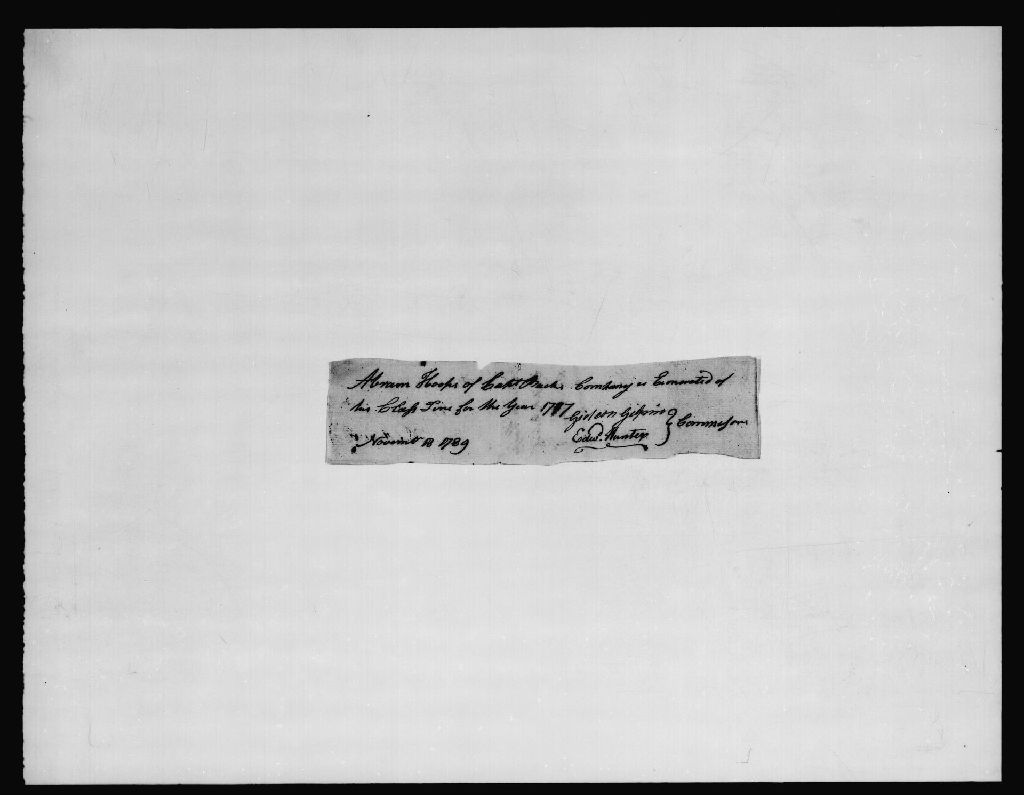 Abram Hoops of Capt. Company is Exonerated of
his Class Fine for the Year 1787
Gideon Gilpin
Edwd. Hunter } Commissrs
Novemb 18 1789